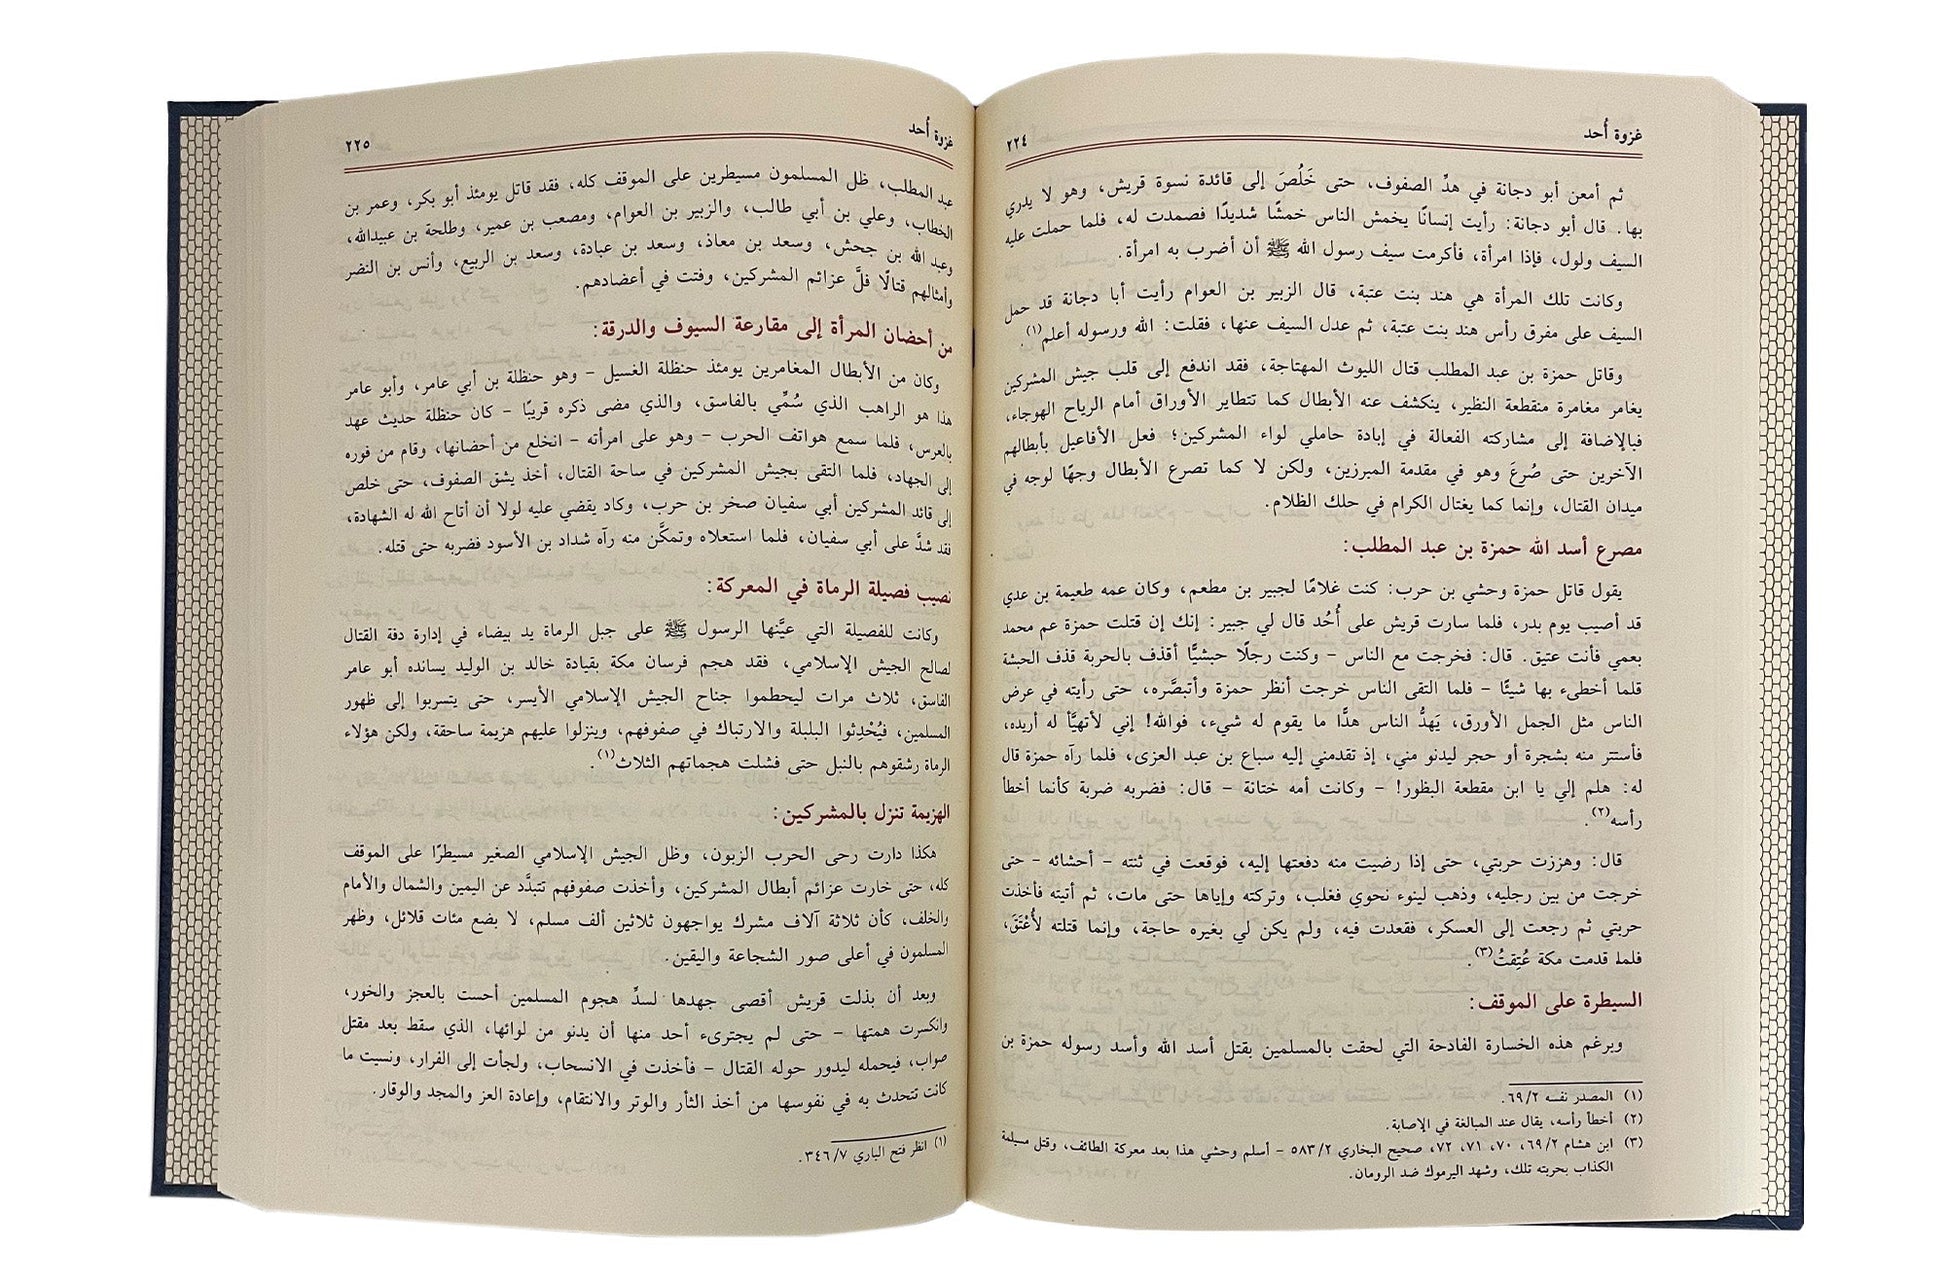 غزوة أُحد ٢٢٤
ثم أمعن أبو دجانة في هدِّ الصفوف، حتى خَلُصَ إلى قائدة نسوة قريش، وهو لا يدري
بها. قال أبو دجانة: رأيت إنسانًا يخمش الناس خمشًا شديدًا فصمدت له، فلما حملت عليه
السيف ولول، فإذا امرأة، فأكرمت سيف رسول الله ﷺ أن أضرب به امرأة.
وكانت تلك المرأة هي هند بنت عتبة، قال الزبير بن العوام رأيت أبا دجانة قد حمل
السيف على مفرق رأس هند بنت عتبة، ثم عدل السيف عنها، فقلت: الله ورسوله أعلم(١).
وقاتل حمزة بن عبد المطلب قتال الليوث المهتاجة، فقد اندفع إلى قلب جيش المشركين
يغامر مغامرة منقطعة النظير، ينكشف عنه الأبطال كما تتطاير الأوراق أمام الرياح الهوجاء،
فبالإضافة إلى مشاركته الفعالة في إبادة حاملي لواء المشركين؛ فعل الأفاعيل بأبطالهم
الآخرين حتى صُرِعَ وهو في مقدمة المبرزين، ولكن لا كما تصرع الأبطال وجهًا لوجه في
ميدان القتال، وإنما كما يغتال الكرام في حلك الظلام.
مصرع أسد الله حمزة بن عبد المطلب:
يقول قاتل حمزة وحشي بن حرب: كنت غلامًا لجبير بن مطعم، وكان عمه طعيمة بن عدي
قد أصيب يوم بدر، فلما سارت قريش على أُحُد قال لي جبير: إنك إن قتلت حمزة عم محمد
بعمي فأنت عتيق. قال: فخرجت مع الناس - وكنت رجلًا حبشيًّا أقذف بالحربة قذف الحبشة
قلما أخطىء بها شيئًا - فلما التقى الناس خرجت أنظر حمزة وأتبصَّره، حتى رأيته في عرض
الناس مثل الجمل الأورق، يَهدُّ الناس هدًّا ما يقوم له شيء، فوالله! إني لأتهيَّأ له أريده،
فأستتر منه بشجرة أو حجر ليدنو مني، إذ تقدمني إليه سباع بن عبد العزى، فلما رآه حمزة قال
له: هلم إلي يا ابن مقطعة البظور! - وكانت أمه ختانة - قال: فضربه ضربة كأنما أخطأ
رأسه(٢).
قال: وهززت حربتي، حتى إذا رضيت منه دفعتها إليه، فوقعت في ثنته - أحشائه - حتى
خرجت من بين رجليه، وذهب لينوء نحوي فغلب، وتركته وإياها حتى مات، ثم أتيته فأخذت
حربتي ثم رجعت إلى العسكر، فقعدت فيه، ولم يكن لي بغيره حاجة، وإنما قتلته لأُعْتَقَ،
فلما قدمت مكة عُتِقتُ(٣).
السيطرة على الموقف:
وبرغم هذه الخسارة الفادحة التي لحقت بالمسلمين بقتل أسد الله وأسد رسوله حمزة بن
(١) المصدر نفسه ٦٩/٢.
(٢) أخطأ رأسه، يقال عند المبالغة في الإصابة.
(٣) ابن هشام ٦٩/٢، ٧٠، ٧١، ٧٢، صحيح البخاري ٥٨٣/٢ - أسلم وحشي هذا بعد معركة الطائف، وقتل مسيلمة
الكذاب بحربته تلك، وشهد اليرموك ضد الرومان.
غزوة أُحد ٢٢٥
عبد المطلب، ظل المسلمون مسيطرين على الموقف كله، فقد قاتل يومئذ أبو بكر، وعمر بن
الخطاب، وعلي بن أبي طالب، والزبير بن العوام، ومصعب بن عمير، وطلحة بن عبيدالله،
وعبد الله بن جحش، وسعد بن معاذ، وسعد بن عبادة، وسعد بن الربيع، وأنس بن النضر
وأمثالهم قتالًا فلَّ عزائم المشركين، وفتت في أعضادهم.
من أحضان المرأة إلى مقارعة السيوف والدرقة:
وكان من الأبطال المغامرين يومئذ حنظلة الغسيل - وهو حنظلة بن أبي عامر، وأبو عامر
هذا هو الراهب الذي سُمِّي بالفاسق، والذي مضى ذكره قريبًا - كان حنظلة حديث عهد
بالعرس، فلما سمع هواتف الحرب - وهو على امرأته - انخلع من أحضانها، وقام من فوره
إلى الجهاد، فلما التقى بجيش المشركين في ساحة القتال، أخذ يشق الصفوف، حتى خلص
إلى قائد المشركين أبي سفيان صخر بن حرب، وكاد يقضي عليه لولا أن أتاح الله له الشهادة،
فقد شدَّ على أبي سفيان، فلما استعلاه وتمكَّن منه رآه شداد بن الأسود فضربه حتى قتله.
نصيب فصيلة الرماة في المعركة:
وكانت للفصيلة التي عيَّنها الرسول ﷺ على جبل الرماة يد بيضاء في إدارة دفة القتال
لصالح الجيش الإسلامي، فقد هجم فرسان مكة بقيادة خالد بن الوليد يسانده أبو عامر
الفاسق، ثلاث مرات ليحطموا جناح الجيش الإسلامي الأيسر، حتى يتسربوا إلى ظهور
المسلمين، فيُحْدِثوا البلبلة والارتباك في صفوفهم، وينزلوا عليهم هزيمة ساحقة، ولكن هؤلاء
الرماة رشقوهم بالنبل حتى فشلت هجماتهم الثلاث(١).
الهزيمة تنزل بالمشركين:
هكذا دارت رحى الحرب الزبون، وظل الجيش الإسلامي الصغير مسيطرًا على الموقف
كله، حتى خارت عزائم أبطال المشركين، وأخذت صفوفهم تتبدَّد عن اليمين والشمال والأمام
والخلف، كأن ثلاثة آلاف مشرك يواجهون ثلاثين ألف مسلم، لا بضع مئات قلائل، وظهر
المسلمون في أعلى صور الشجاعة واليقين.
وبعد أن بذلت قريش أقصى جهدها لسدِّ هجوم المسلمين أحست بالعجز والخور،
وانكسرت همتها - حتى لم يجترىء أحد منها أن يدنو من لوائها، الذي سقط بعد مقتل
صواب، فيحمله ليدور حوله القتال - فأخذت في الانسحاب، ولجأت إلى الفرار، ونسيت ما
كانت تتحدث به في نفوسها من أخذ الثأر والوتر والانتقام، وإعادة العز والمجد والوقار.
(١) انظر فتح الباري ٣٤٦/٧.